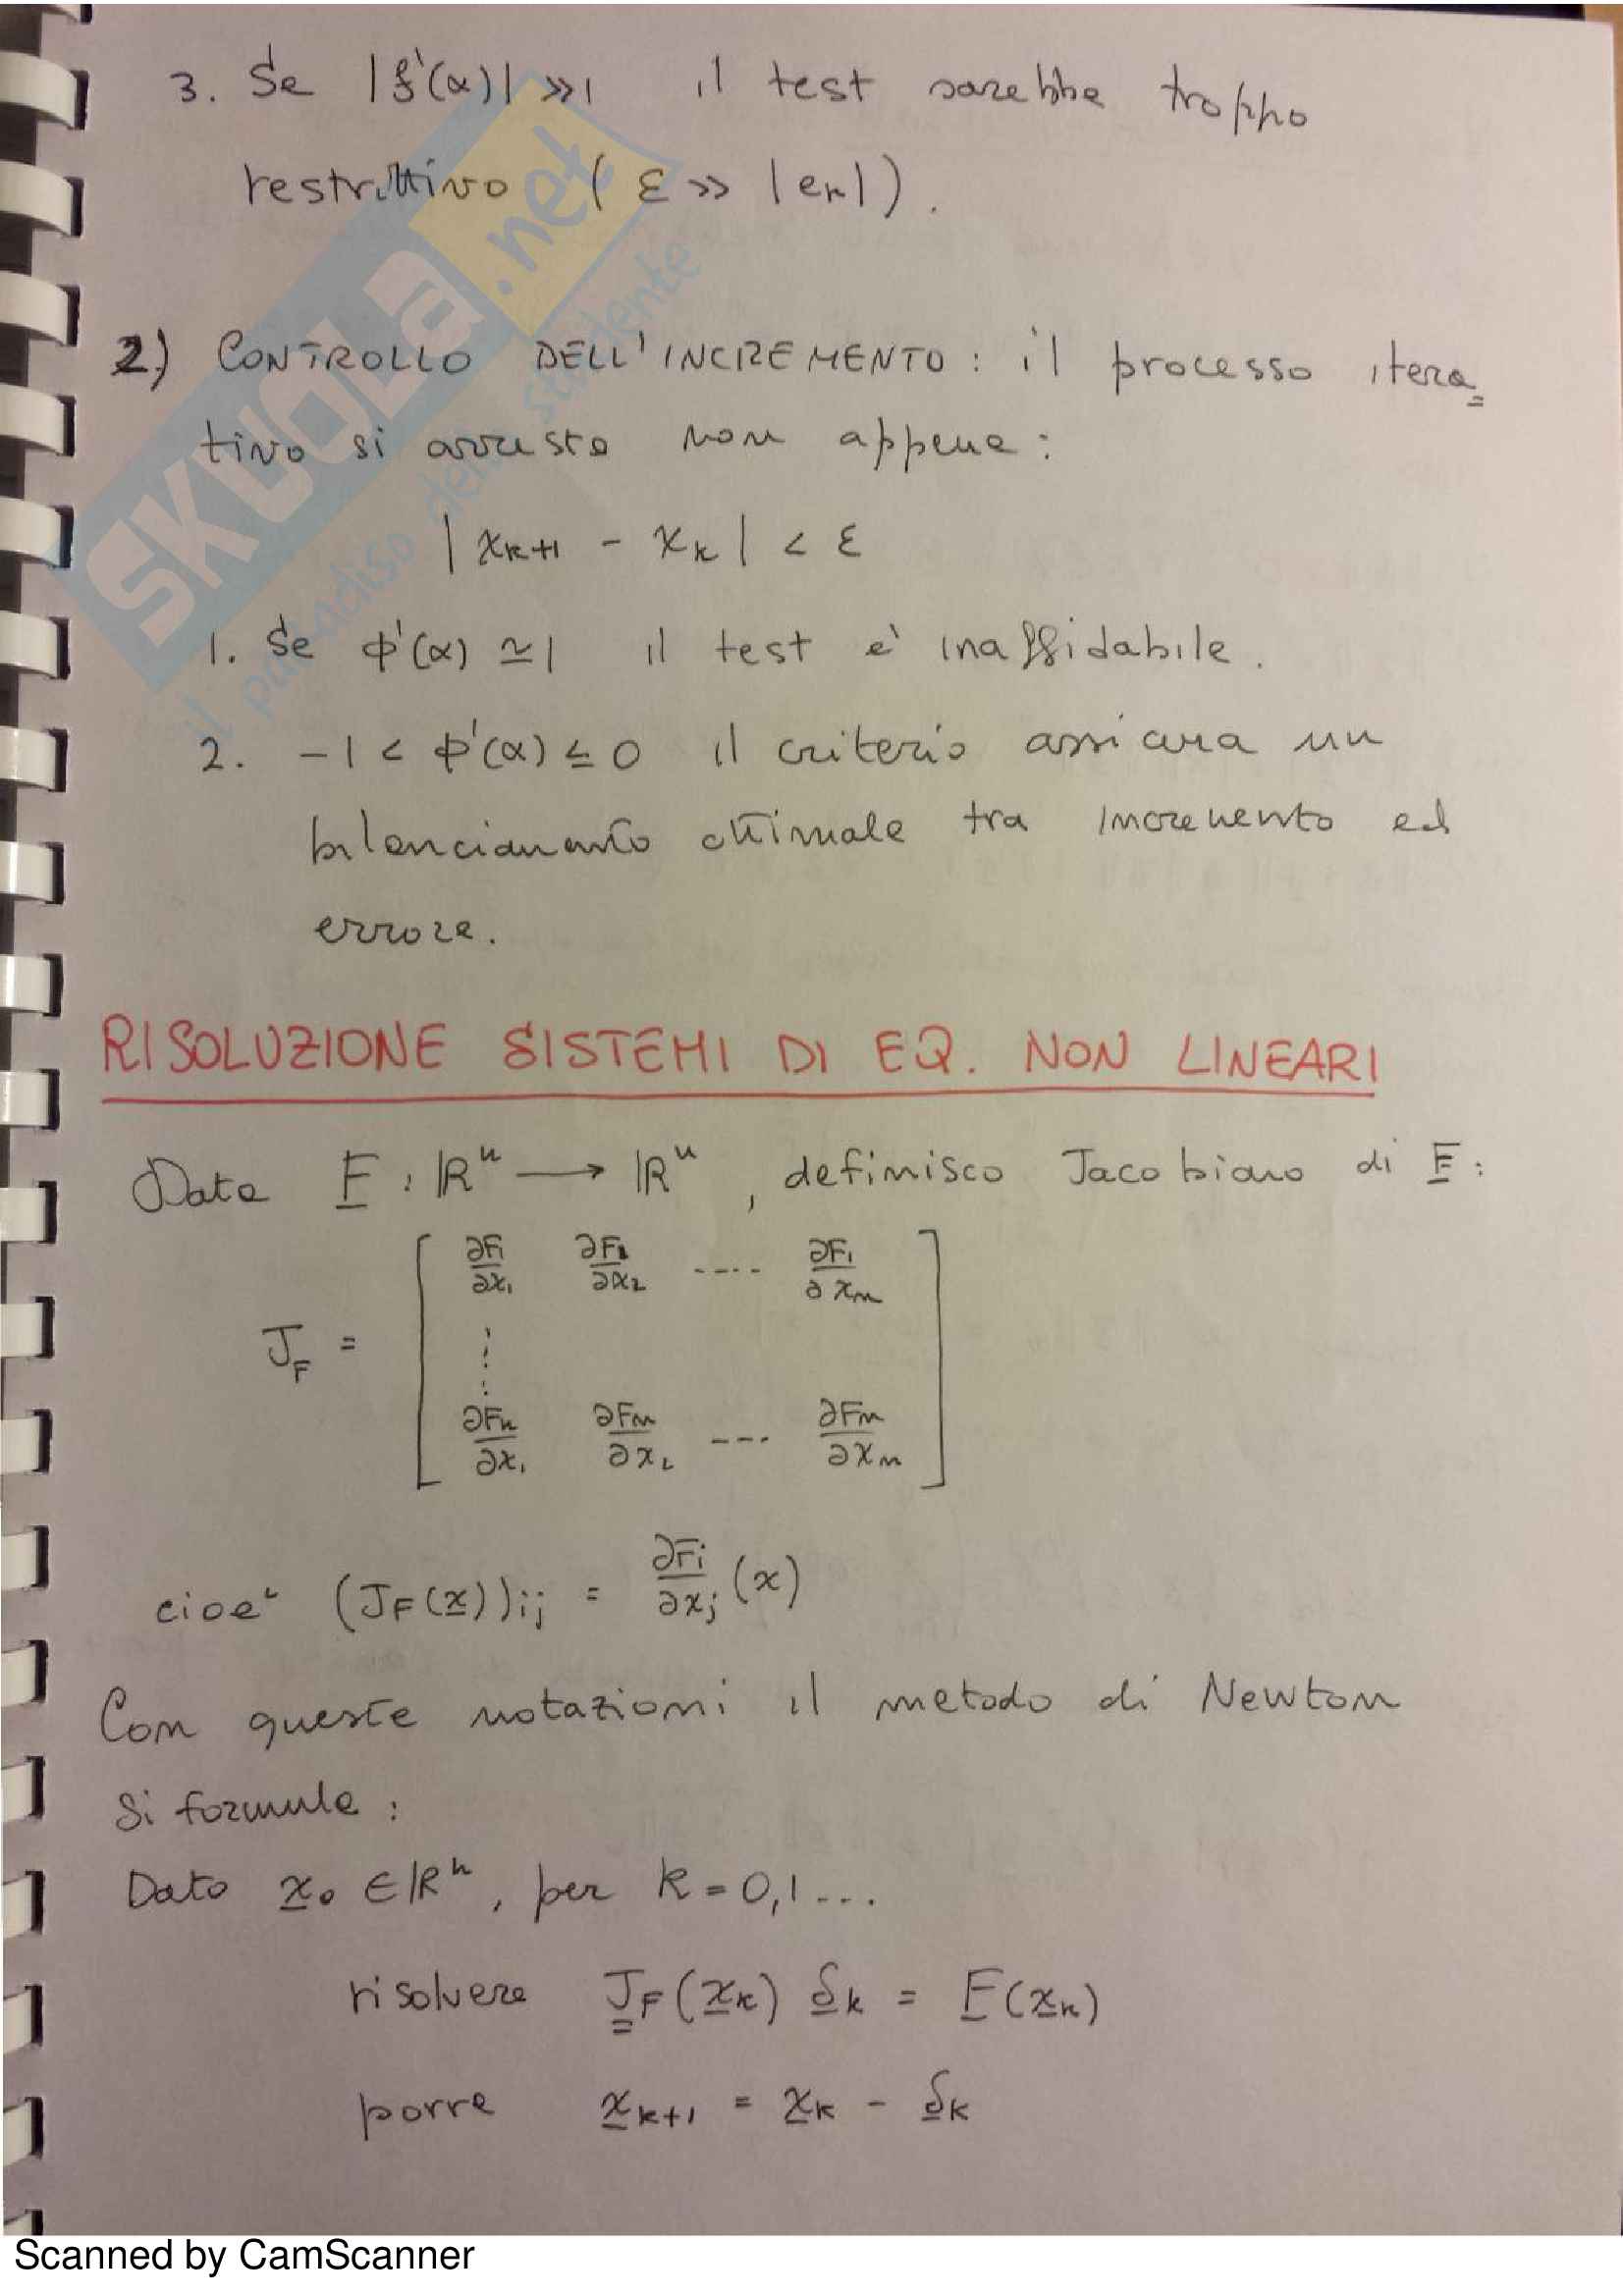 3. Se |f'(α)| >>1 il test sarebbe troppo
restrittivo (ε >> |eₖ|).
2) CONTROLLO DELL'INCREMENTO: il processo itera=
tivo si arresta non appena:
|xₖ₊₁ - xₖ| < ε
1. Se ϕ'(α) ≃ 1 il test è inaffidabile.
2. -1 < ϕ'(α) ≤ 0 il criterio assicura un
bilanciamento ottimale tra incremento ed
errore.
RISOLUZIONE SISTEMI DI EQ. NON LINEARI
Data F : ℝⁿ → ℝⁿ, definisco Jacobiano di F:
J_F = [ ∂F₁/∂x₁ ∂F₁/∂x₂ .... ∂F₁/∂xₙ
⋮
∂Fₙ/∂x₁ ∂Fₙ/∂x₂ --- ∂Fₙ/∂xₙ ]
cioè (J_F(x))ij = ∂Fi/∂xj (x)
Con queste notazioni il metodo di Newton
si formula:
Dato x₀ ∈ ℝⁿ, per k = 0,1...
risolvere J_F(xₖ) δₖ = F(xₖ)
porre xₖ₊₁ = xₖ - δₖ
SKUOLA.net
il paradiso dello studente
Scanned by CamScanner